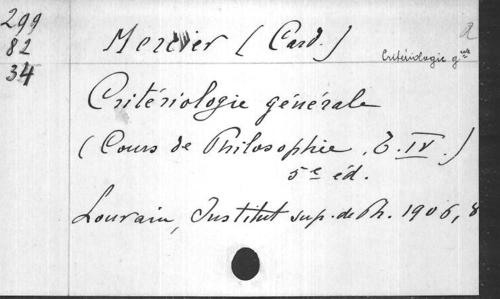 299
82
34
Mercier (Card.)
a
Critériologie gle
Critériologie générale
(Cours de Philosophie, T. IV.)
5e éd.
Louvain, Institut sup. de Ph. 1906, 8